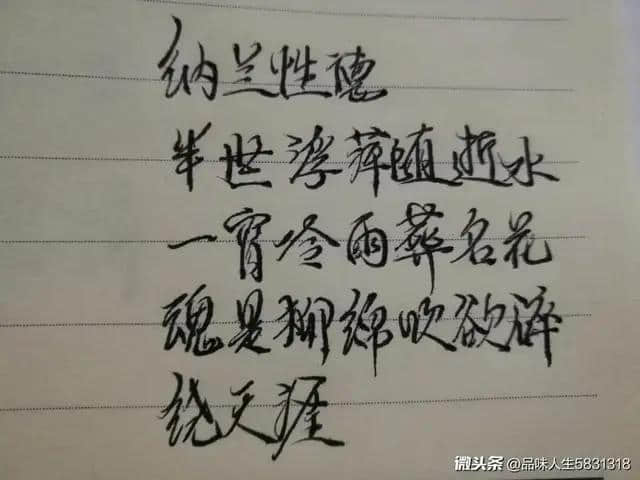 纳兰性德
半世浮萍随逝水
一宵冷雨葬名花
魂是柳绵吹欲碎
绕天涯
微头条 @品味人生5831318